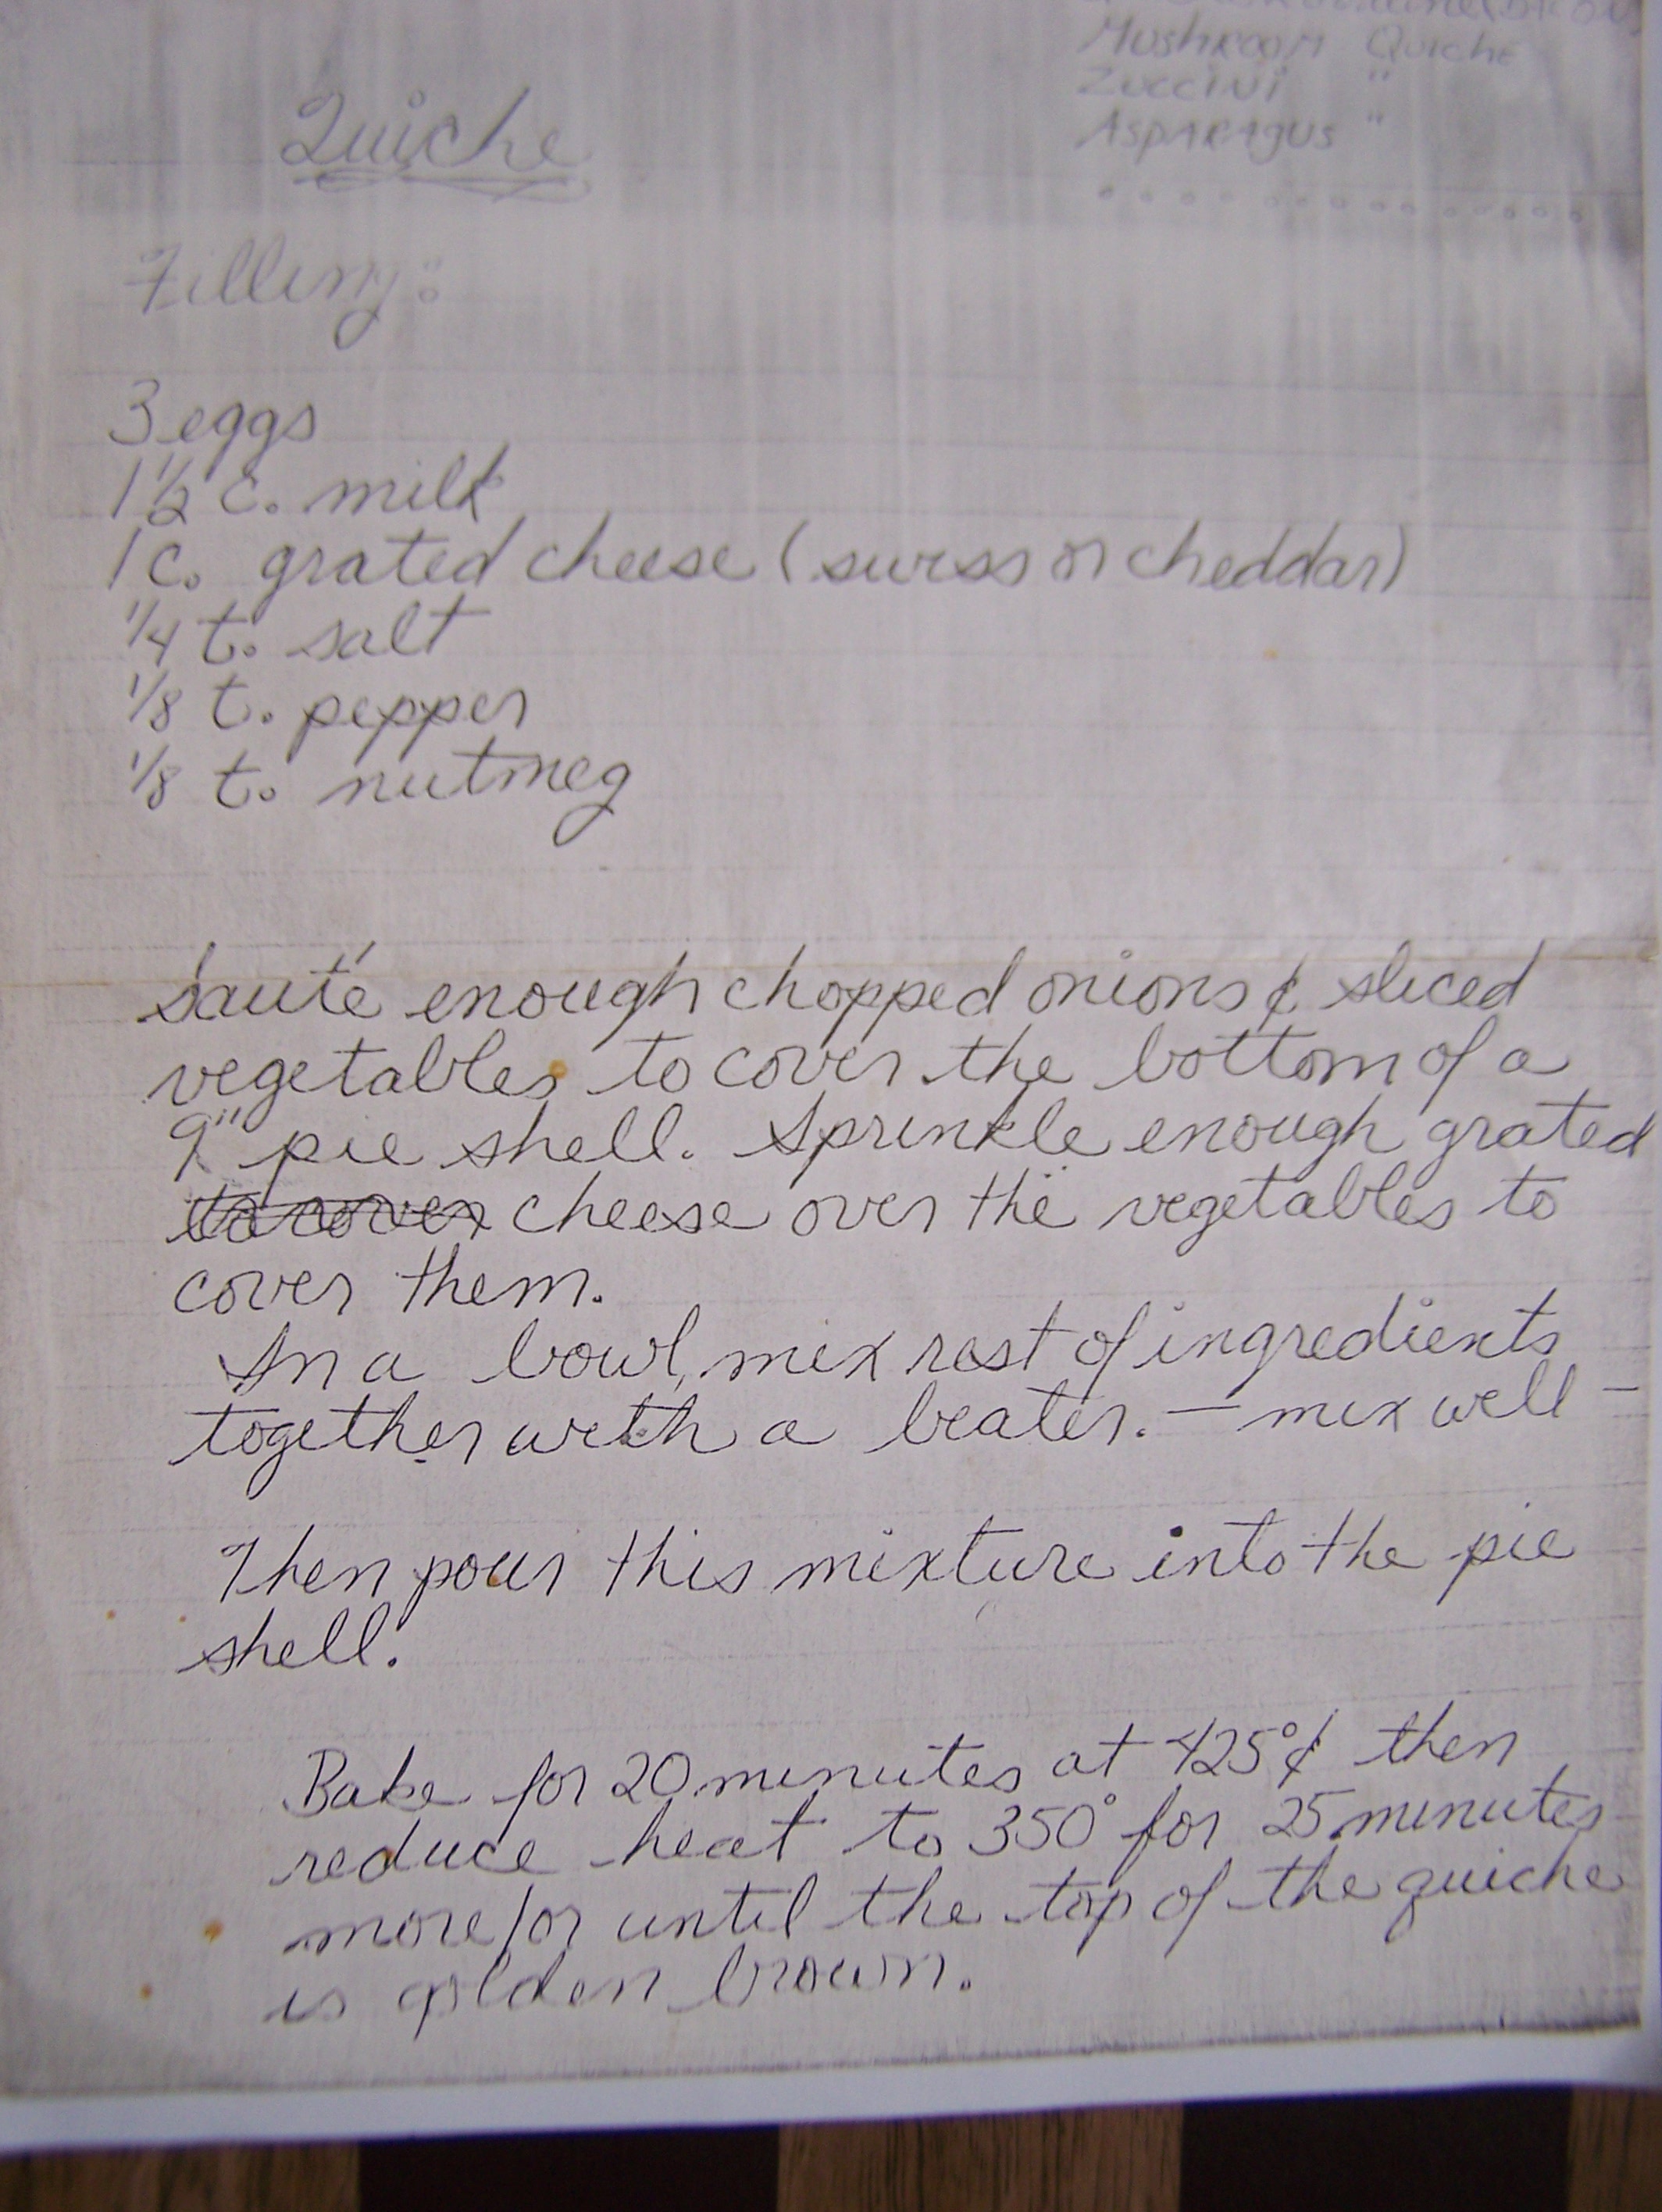 Mushroom Quiche
Zuccini "
Asparagus "
Quiche
Filling:
3 eggs
1 1/2 c. milk
1 c. grated cheese (swiss or cheddar)
1/4 t. salt
1/8 t. pepper
1/8 t. nutmeg
Sauté enough chopped onions & sliced
vegetables to cover the bottom of a
9" pie shell. Sprinkle enough grated
to cover cheese over the vegetables to
cover them.
In a bowl, mix rest of ingredients
together with a beater. — mix well —
Then pour this mixture into the pie
shell.
Bake for 20 minutes at 425° & then
reduce heat to 350° for 25 minutes
more/or until the top of the quiche
is golden brown.